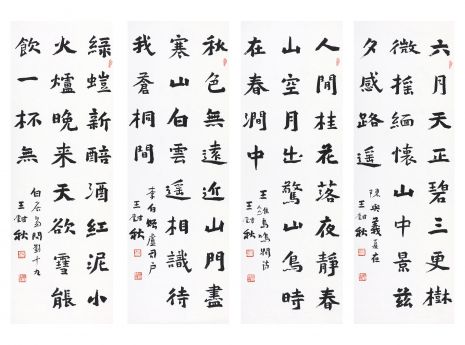 六月天正碧三更樹
微摇緬懷山中景兹
夕感路遥
陳與義夏夜
人閒桂花落夜靜春
山空月出驚山鳥時
在春澗中
王維鳥鳴澗詩
秋色無遠近山門盡
寒山白雲遥相識待
我蒼桐間
李白贈盧司户
綠螘新醅酒紅泥小
火爐晚来天欲雪能
飲一杯無
白居易問劉十九